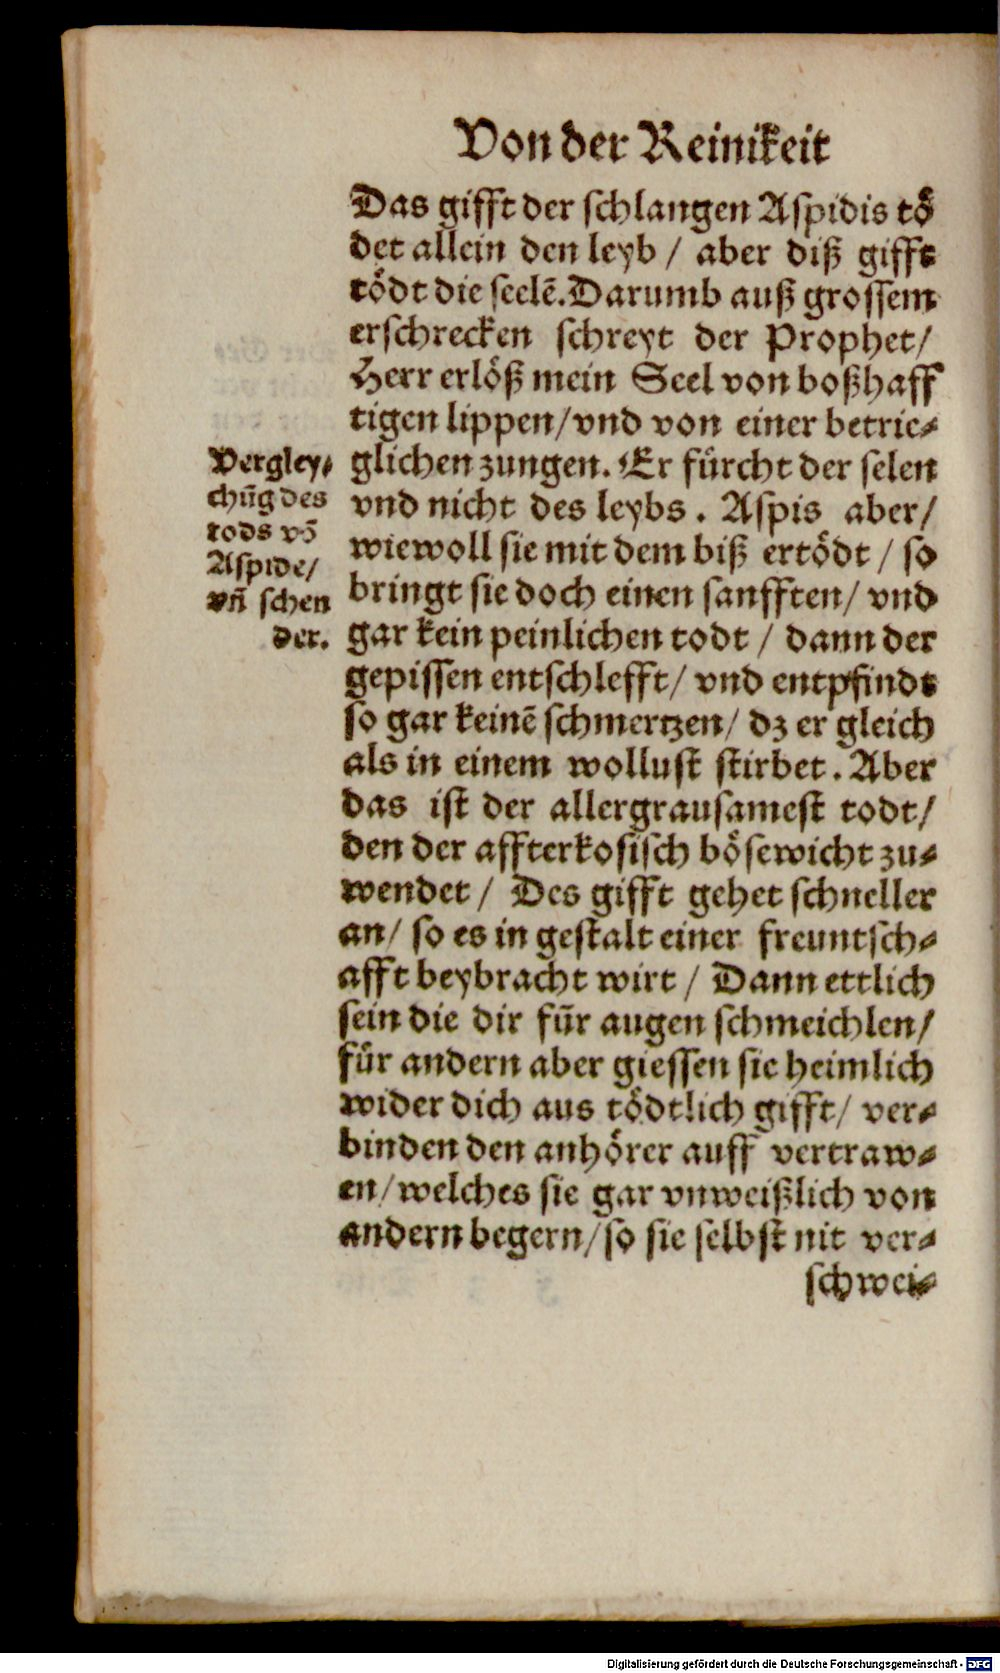 Von der Reinikeit
Das gifft der schlangen Aspidis tö
det allein den leyb / aber diß gifft
tödt die seelē. Darumb auß grossem
erschrecken schreyt der Prophet/
Herr erlöß mein Seel von boßhaff
tigen lippen/vnd von einer betrie⸗
glichen zungen. Er fürcht der selen
vnd nicht des leybs . Aspis aber/
wiewoll sie mit dem biß ertödt / so
bringt sie doch einen sanfften/ vnd
gar kein peinlichen todt / dann der
gepissen entschlefft/ vnd entpfindt
so gar keinē schmertzen/ dz er gleich
als in einem wollust stirbet . Aber
das ist der allergrausamest todt/
den der affterkosisch bösewicht zu⸗
wendet / Des gifft gehet schneller
an/ so es in gestalt einer freuntsch⸗
afft beybracht wirt / Dann ettlich
sein die dir für augen schmeichlen/
für andern aber giessen sie heimlich
wider dich aus tödtlich gifft/ ver⸗
binden den anhörer auff vertraw⸗
en/welches sie gar vnweißlich von
andern begern/so sie selbst nit ver⸗
schwei⸗
Vergley⸗
chūg des
tods vō
Aspide/
vñ schen
der.
Digitalisierung gefördert durch die Deutsche Forschungsgemeinschaft - DFG